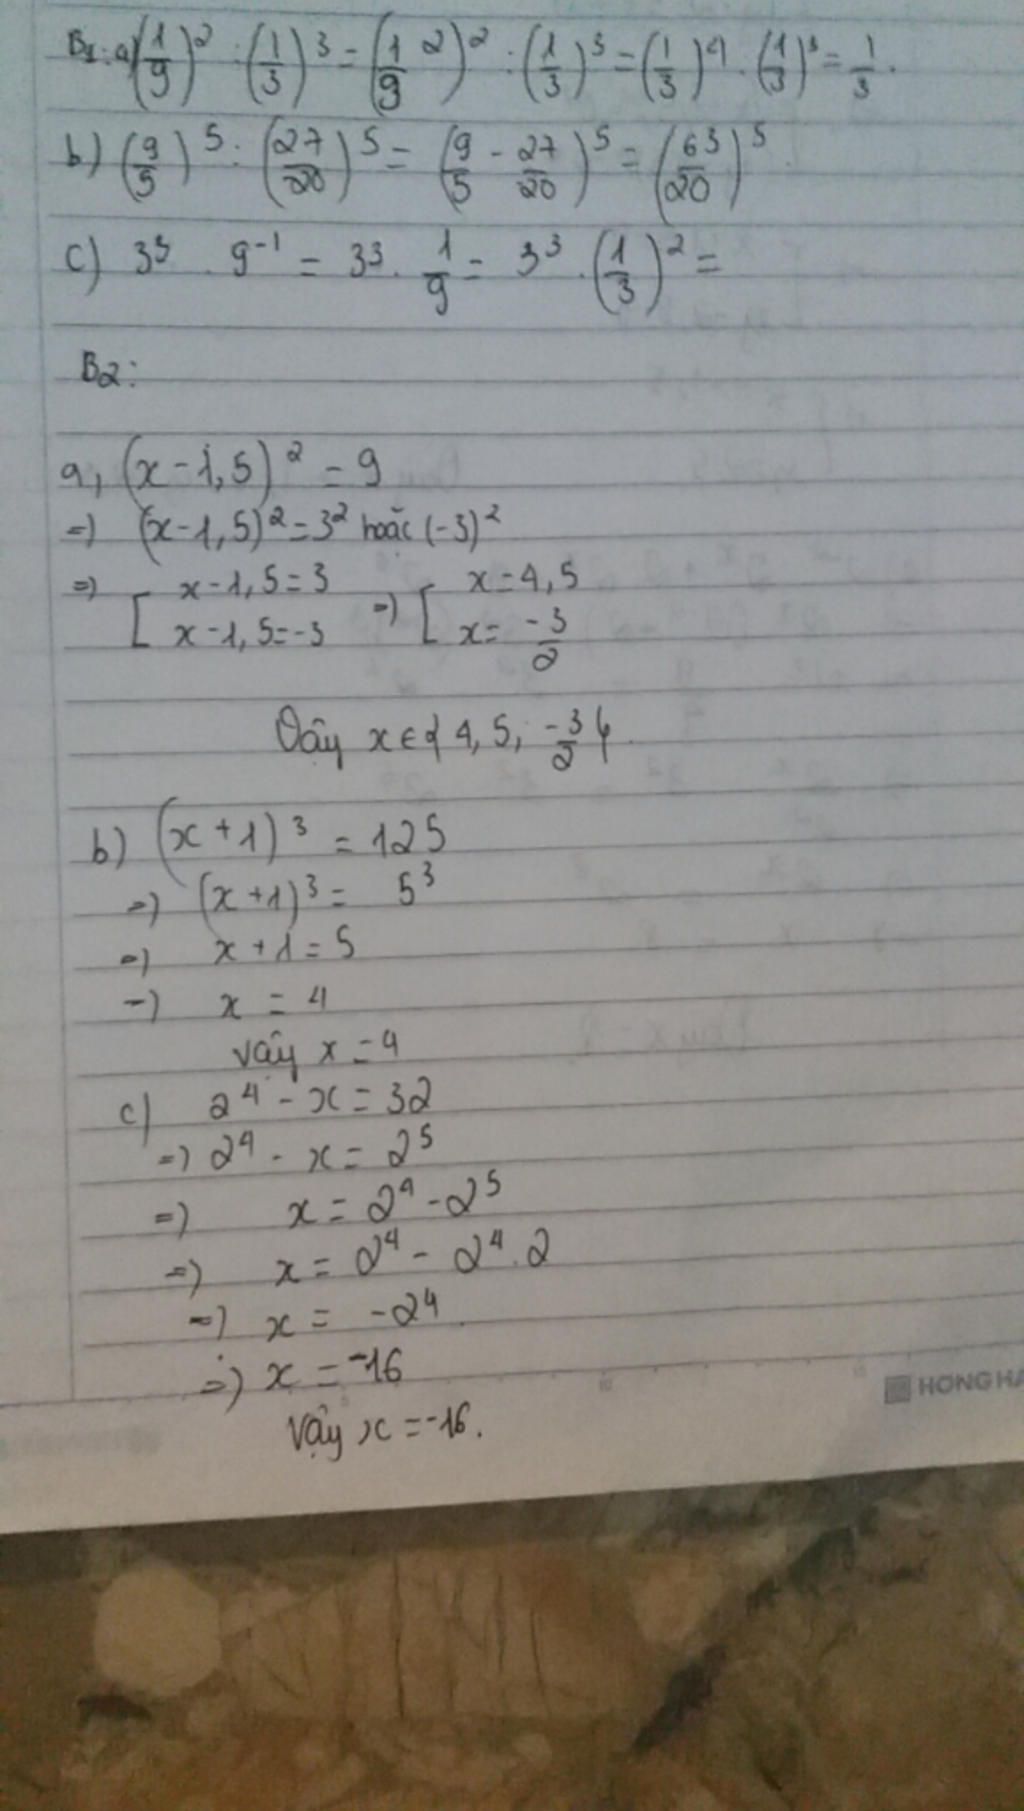 B1: a) (1/9)^2 : (1/3)^3 = (1/9 2)^2 : (1/3)^3 = (1/3)^4 . (1/3)^3 = 1/3.
b) (9/5)^5 : (27/20)^5 = (9/5 - 27/20)^5 = (63/20)^5
c) 3^3 . 9^-1 = 3^3 . 1/9 = 3^3 . (1/3)^2 =
B2:
a, (x-1,5)^2 = 9
=) (x-1,5)^2 = 3^2 hoặc (-3)^2
=) [ x-1,5=3 =) [ x=4,5
x-1,5=-3 x= -3/2
Vậy x∈{4,5; -3/2}.
b) (x+1)^3 = 125
=) (x+1)^3 = 5^3
=) x+1=5
=) x = 4
vậy x = 4
c) 2^4 - x = 32
=) 2^4 - x = 2^5
=) x = 2^4 - 2^5
=) x = 2^4 - 2^4.2
=) x = -2^4.
=) x = -16
HONG HA
Vậy x = -16.